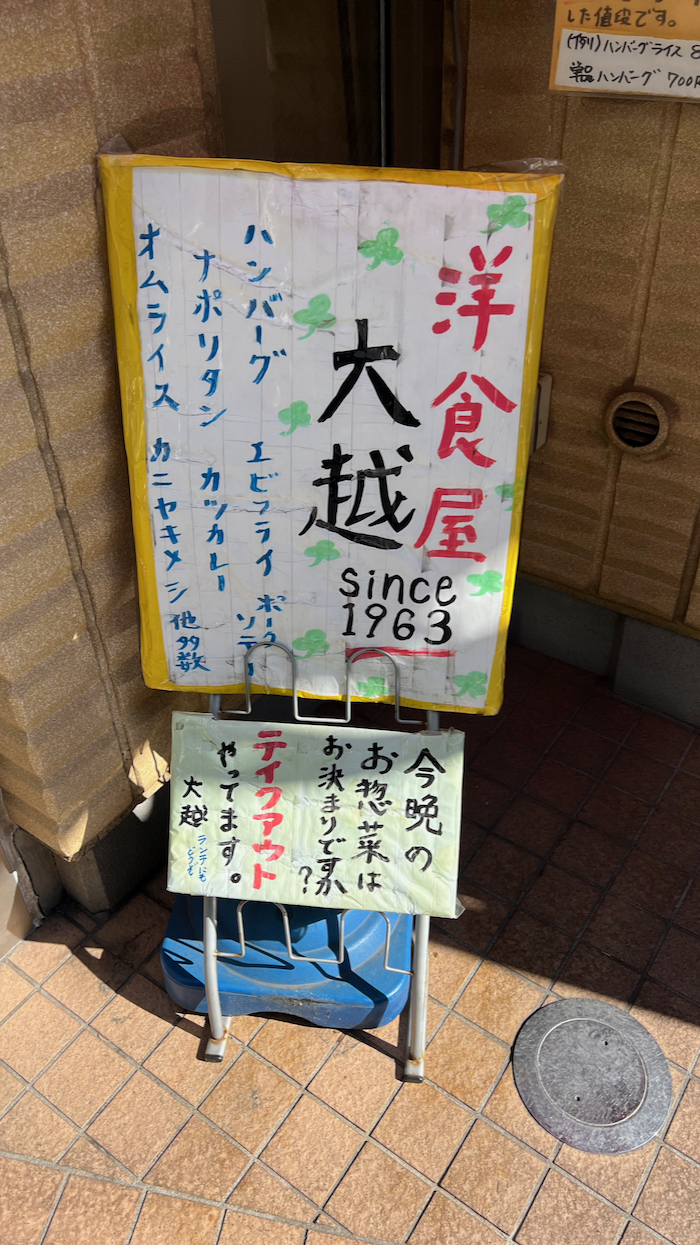 洋食屋
大越
since
1963
ハンバーグ エビフライ ポークソテー
ナポリタン カツカレー
オムライス カニヤキメシ 他多数
今晩の
お惣菜は
お決まりですか?
テイクアウト
やってます。
大越
ランチにも
どうぞ
した値段です。
(例)ハンバーグライス 8
単品ハンバーグ 700円